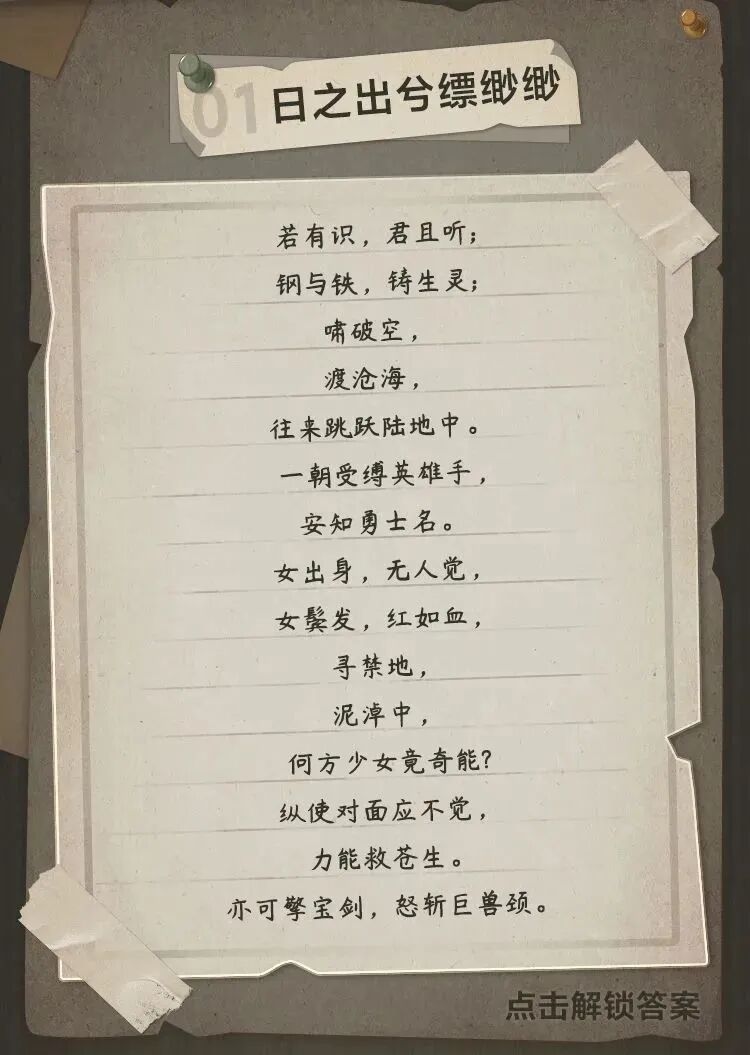 01 日之出兮缥缈缈
若有识，君且听；
钢与铁，铸生灵；
啸破空，
渡沧海，
往来跳跃陆地中。
一朝受缚英雄手，
安知勇士名。
女出身，无人觉，
女鬓发，红如血，
寻禁地，
泥淖中，
何方少女竟奇能？
纵使对面应不觉，
力能救苍生。
亦可擎宝剑，怒斩巨兽颈。
点击解锁答案